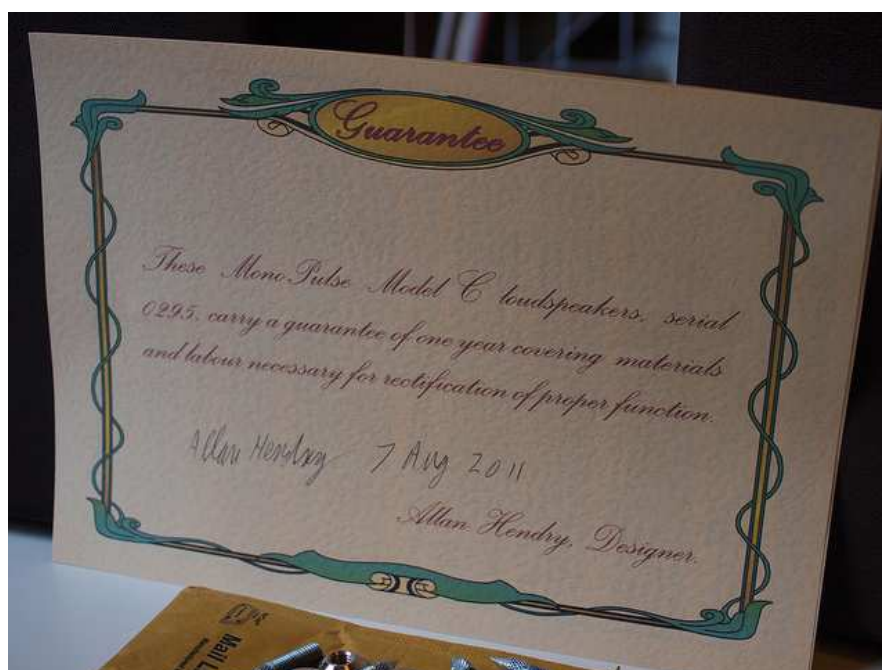 Guarantee
These Mono Pulse Model C loudspeakers, serial
0295, carry a guarantee of one year covering materials
and labour necessary for rectification of proper function.
Allan Hendry 7 Aug 2011
Allan Hendry, Designer.
Mail L